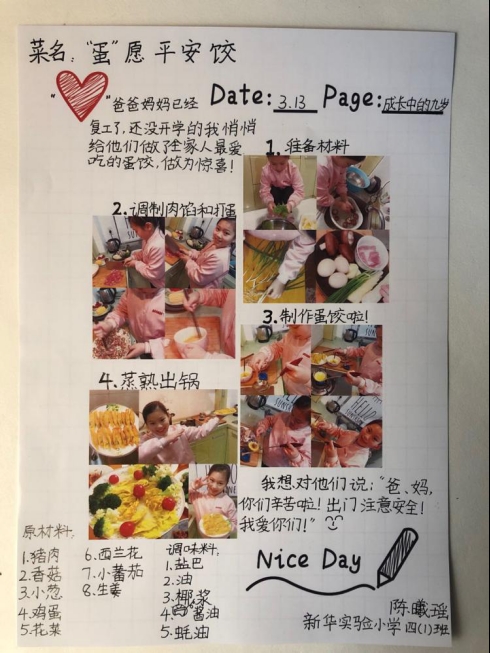 菜名："蛋"愿平安饺
Date: 3.13 Page: 成长中的九岁
" "爸爸妈妈已经
复工了，还没开学的我悄悄
给他们做了全家人最爱
吃的蛋饺，做为惊喜！
1. 准备材料
2. 调制肉馅和打蛋
3. 制作蛋饺啦！
4. 蒸熟出锅
我想对他们说："爸、妈，
你们辛苦啦！出门注意安全！
我爱你们！"
原材料：
1.猪肉
2.香菇
3.小葱
4.鸡蛋
5.花菜
6.西兰花
7.小蕃茄
8.生姜
调味料：
1.盐巴
2.油
3.椰浆
4.酱油
5.蚝油
Nice Day
陈曦瑶
新华实验小学 四(1)班